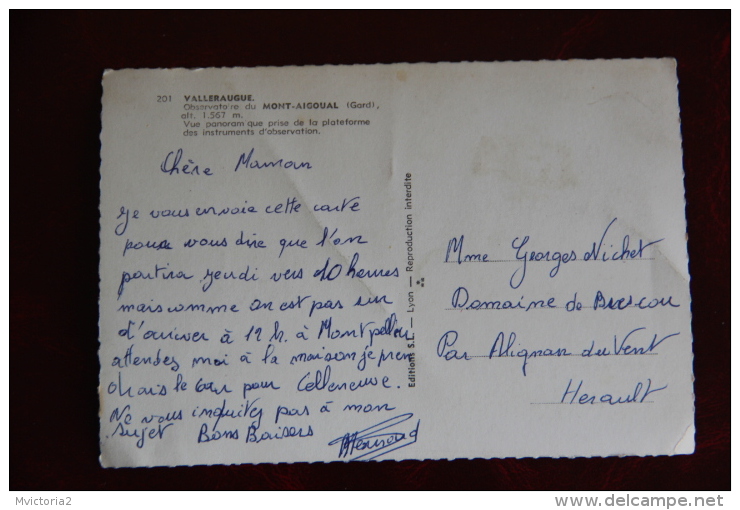 201 VALLERAUGUE.
Observatoire du MONT-AIGOUAL (Gard),
alt. 1.567 m.
Vue panoramique prise de la plateforme
des instruments d'observation.
Chère Maman
Je vous envoie cette carte
pour vous dire que l'on
partira jeudi vers 10 heures
mais comme on est pas sur
d'arriver à 12 h. à Montpellier
attendez moi à la maison je pren
drais le car pour Celleneuve.
Ne vous inquitez pas à mon
sujet Bons Baisers
Editions S.L. — Lyon — Reproduction interdite
Mme Georges Nichet
Domaine de
Par Alignan du Vent
Herault
Mvictoria2
www.delcampe.net